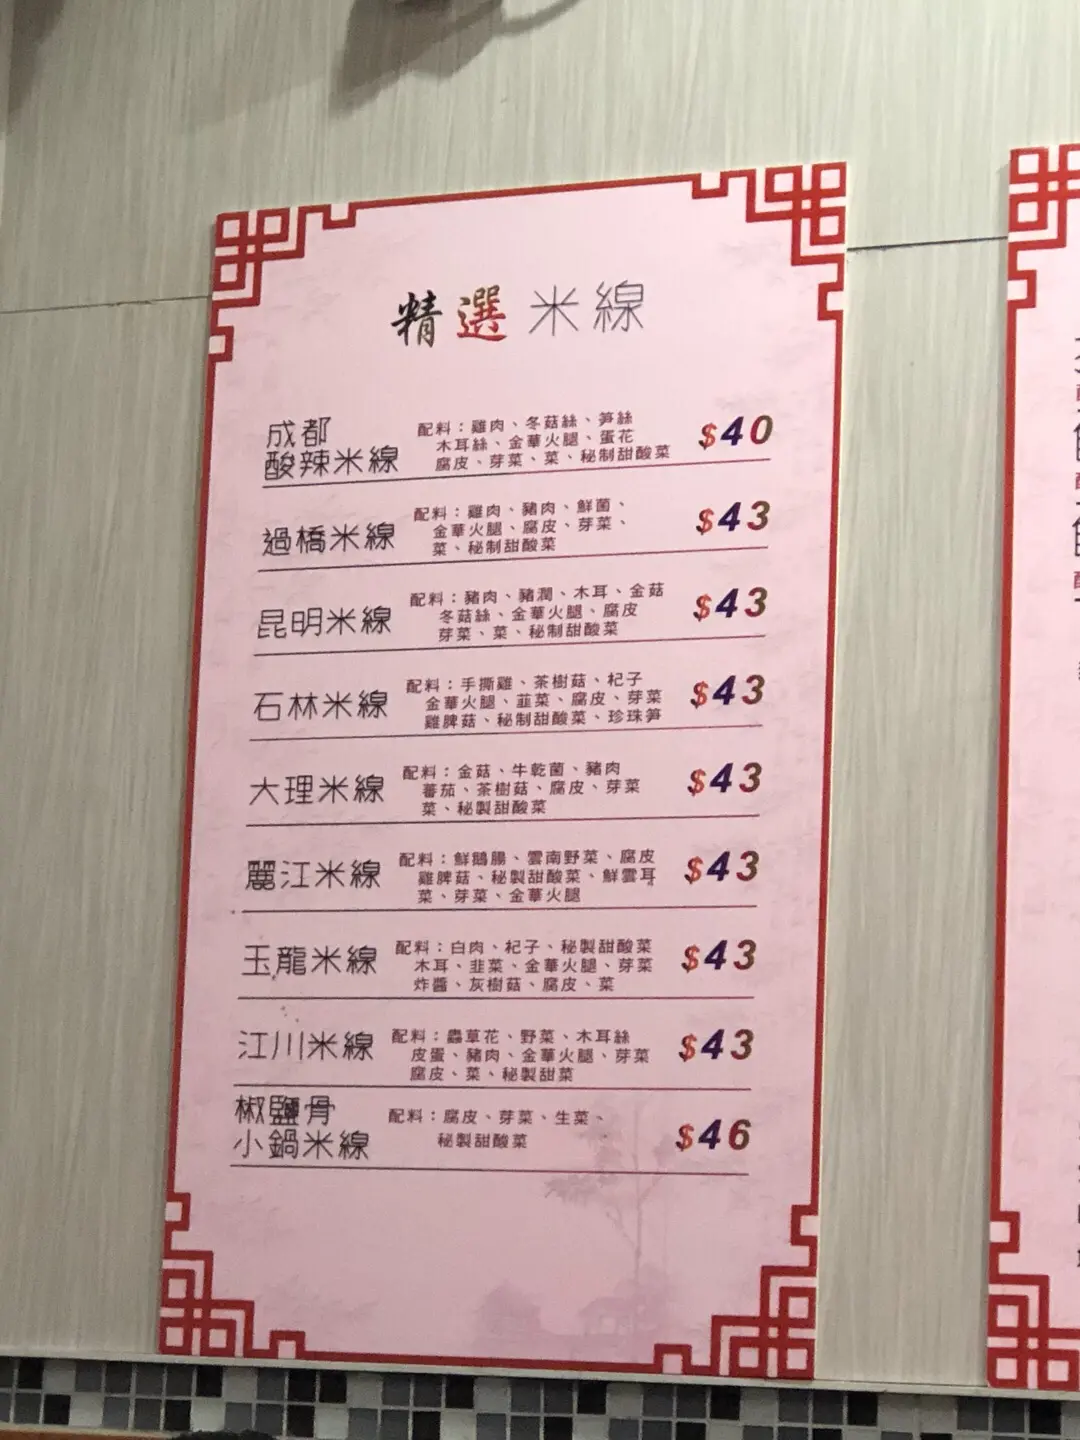 精選米線
成都
酸辣米線
配料：雞肉、冬菇絲、笋絲
木耳絲、金華火腿、蛋花
腐皮、芽菜、菜、秘制甜酸菜
$40
過橋米線
配料：雞肉、豬肉、鮮菌、
金華火腿、腐皮、芽菜、
菜、秘制甜酸菜
$43
昆明米線
配料：豬肉、豬潤、木耳、金菇
冬菇絲、金華火腿、腐皮
芽菜、菜、秘制甜酸菜
$43
石林米線
配料：手撕雞、茶樹菇、杞子
金華火腿、韮菜、腐皮、芽菜
雞脾菇、秘制甜酸菜、珍珠笋
$43
大理米線
配料：金菇、牛乾菌、豬肉
蕃茄、茶樹菇、腐皮、芽菜
菜、秘製甜酸菜
$43
麗江米線
配料：鮮鵝腸、雲南野菜、腐皮
雞脾菇、秘製甜酸菜、鮮雲耳
菜、芽菜、金華火腿
$43
玉龍米線
配料：白肉、杞子、秘製甜酸菜
木耳、韭菜、金華火腿、芽菜
炸醬、灰樹菇、腐皮、菜
$43
江川米線
配料：蟲草花、野菜、木耳絲
皮蛋、豬肉、金華火腿、芽菜
腐皮、菜、秘製甜菜
$43
椒鹽骨
小鍋米線
配料：腐皮、芽菜、生菜、
秘製甜酸菜
$46